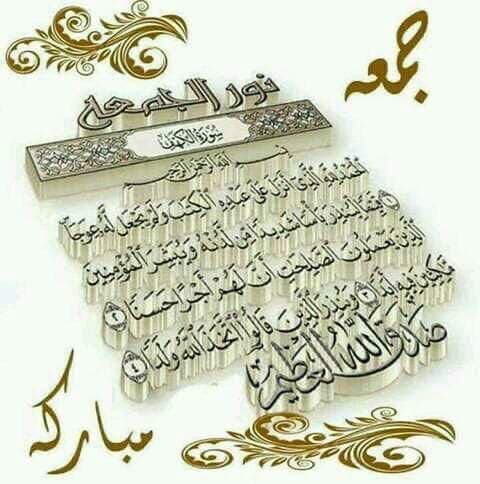 جمعه
نور الجمعه
سورة الكهف
بسم الله الرحمن الرحيم
الحمد لله الذي أنزل على عبده الكتب ولم يجعل له عوجا ١
قيما لينذر بأسا شديدا من لدنه ويبشر المؤمنين
الذين يعملون الصلحت أن لهم أجرا حسنا ٢
مكثين فيه أبدا ٣ وينذر الذين قالوا اتخذ الله ولدا ٤
صدق الله العظيم
مباركه